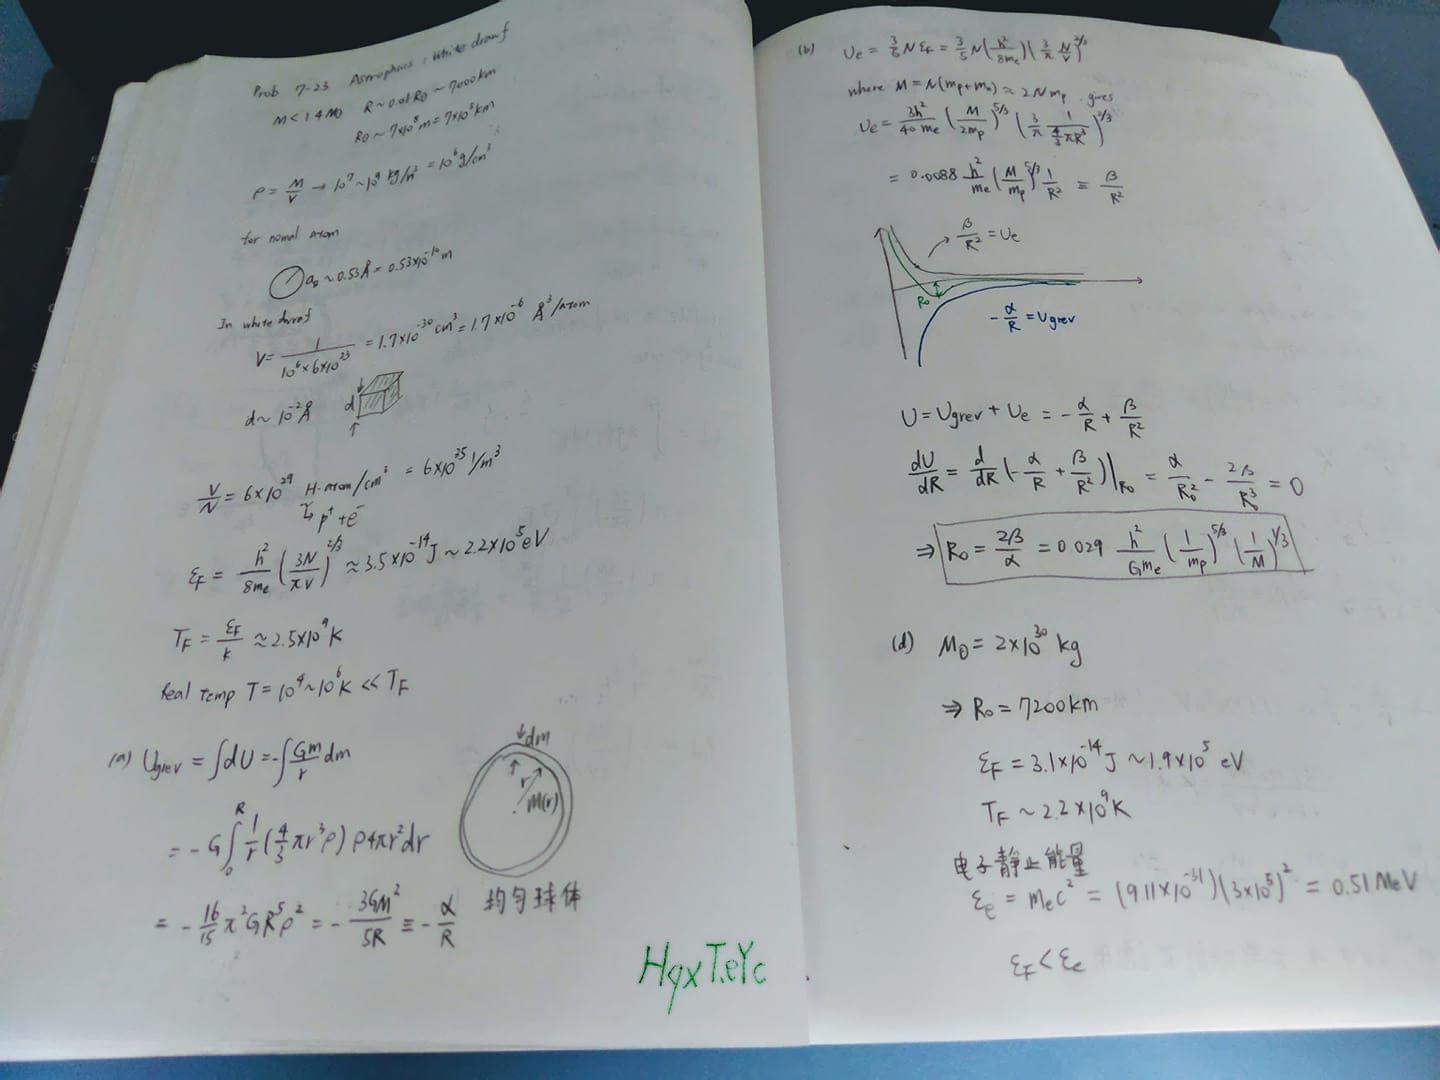 Prob 7-23 Astrophics : White drawf
M < 1.4 M⊙ R ~ 0.01 R⊙ ~ 7000 km
R⊙ ~ 7×10⁸ m = 7×10⁵ km
ρ = M/V → 10⁷ ~ 10⁹ kg/m³ = 10⁶ g/cm³
for nomal atom
a₀ ~ 0.53 Å = 0.53×10⁻¹⁰ m
In white dwraf
V = 1/(10⁶ × 6×10²³) = 1.7×10⁻³⁰ cm³ = 1.7×10⁻⁶ Å³/atom
d ~ 10⁻² Å
d
V/N = 6×10²⁹ H-atom/cm³ = 6×10³⁵ 1/m³
↳ p⁺ + e⁻
ε_F = h²/8mₑ (3N/πV)^2/3 ≈ 3.5×10⁻¹⁴ J ~ 2.2×10⁵ eV
T_F = ε_F/k ≈ 2.5×10⁹ K
Real temp T = 10⁴ ~ 10⁶ K << T_F
(a) Ugrev = ∫dU = -∫ Gm/r dm
= -G ∫₀ᴿ 1/r (4/3 πr³ρ) ρ4πr²dr
= - 16/15 π²GR⁵ρ² = - 3GM²/5R ≡ - α/R
dm
r
M(r)
均匀球体
HqxT.eYc
(b) Ue = 3/5 N ε_F = 3/5 N (h²/8mₑ) (3/π N/V)^2/3
where M = N(mp+mn) ≈ 2Nmp , gives
Ue = 3h²/40mₑ (M/2mp)^5/3 (3/π 1/(4/3 πR³))^2/3
= 0.0088 h²/mₑ (M/mp)^5/3 1/R² ≡ β/R²
β/R² = Ue
R₀
- α/R = Ugrev
U = Ugrev + Ue = - α/R + β/R²
dU/dR = d/dR (- α/R + β/R²)|R₀ = α/R₀² - 2β/R₀³ = 0
⇒ R₀ = 2β/α = 0.029 h²/Gmₑ (1/mp)^5/3 (1/M)^1/3
(d) M⊙ = 2×10³⁰ kg
⇒ R₀ = 7200 km
ε_F = 3.1×10⁻¹⁴ J ~ 1.9×10⁵ eV
T_F ~ 2.2×10⁹ K
电子静止能量
εₑ = mₑc² = (9.11×10⁻³¹)(3×10⁵)² = 0.51 MeV
ε_F < εₑ